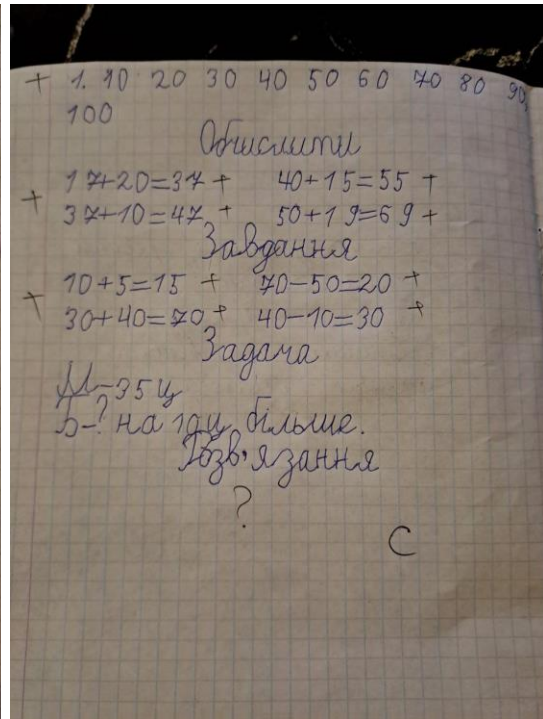 + 1. 10 20 30 40 50 60 70 80 90,
100
Обчислити
+ 17+20=37 + 40+15=55 +
37+10=47 + 50+19=69 +
Завдання
+ 10+5=15 + 70-50=20 +
30+40=70 + 40-10=30 +
Задача
М-35ц
Б-? на 10ц більше.
Розв'язання
?
С